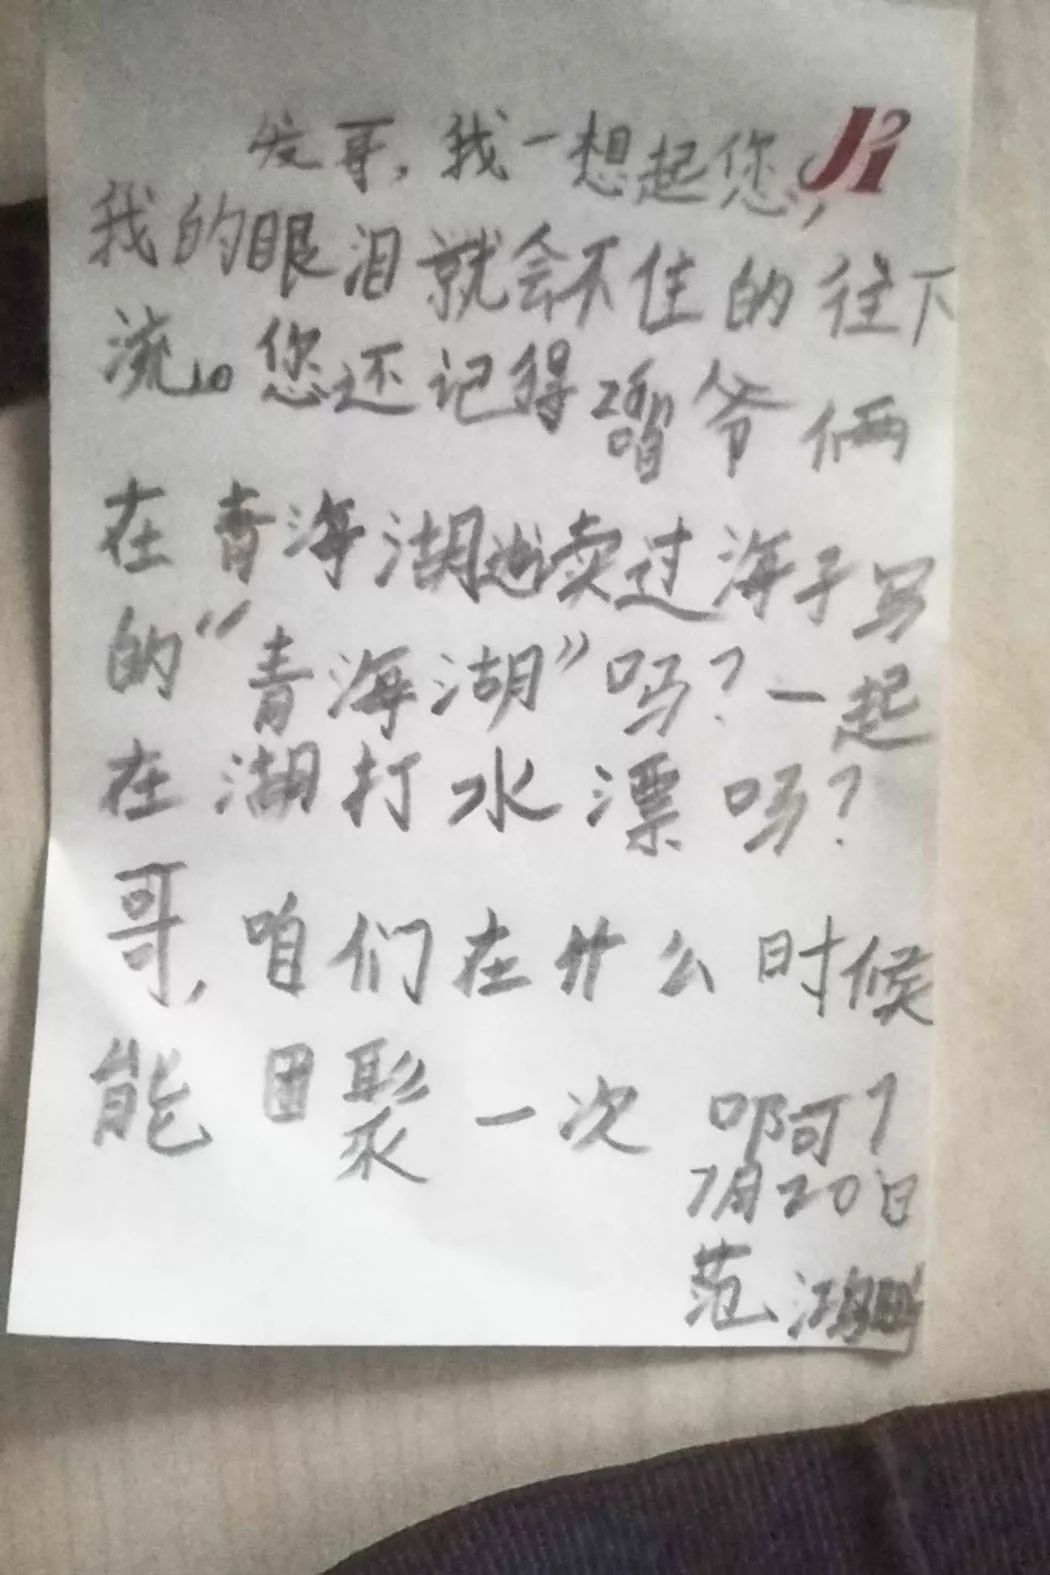 发哥，我一想起您，
我的眼泪就会不住的往下
流。您还记得 咱爷俩
在青海湖边卖过海子写
的“青海湖”吗？一起
在湖打水漂吗？
哥，咱们在什么时候
能团聚一次 啊？
7月20日
范鸿